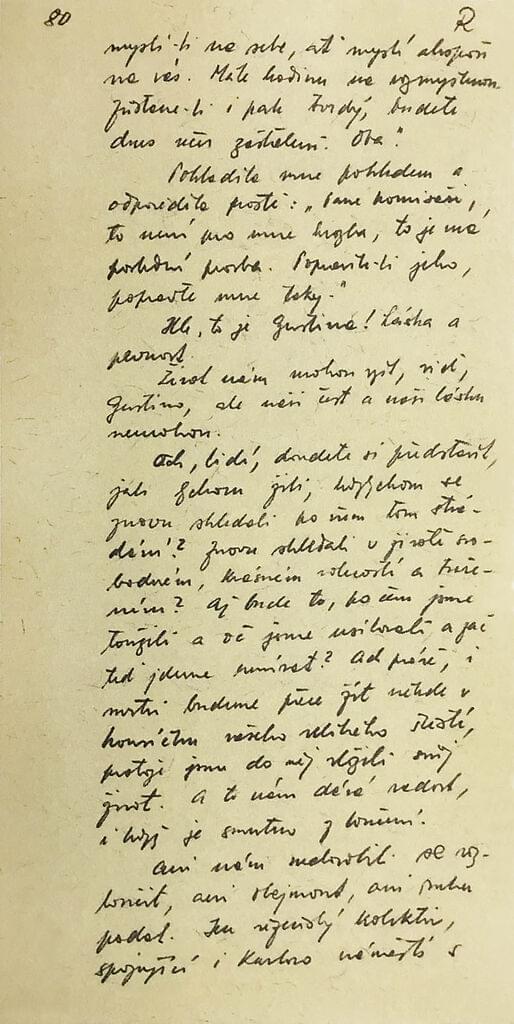 80 R
myslí-li na sebe, ať myslí alespoň
na vás. Máte hodinu na rozmyšlenou.
Zůstane-li i pak tvrdý, budete
dnes večer zastřeleni. Oba."
Pohladila mne pohledem a
odpověděla prostě: „Pane komisaři,
to není pro mne hrozba, to je má
poslední prosba. Popravíte-li jeho,
popravte mne taky."
Hle, to je Gustina! Láska a
pevnost.
Život nám mohou vzít, viď,
Gustino, ale naši čest a naši lásku
nemohou.
Ach, lidi, dovedete si představit,
jak bychom žili, kdybychom se
znovu shledali po všem tom strá-
dání? Znovu shledali v životě svo-
bodném, krásném volností a tvoře-
ním? Až bude to, po čem jsme
toužili a oč jsme usilovali a zač
teď jdeme umírat? Ach
mrtvi budeme přece žít někde v
koutečku vašeho velikého štěstí,
protože jsme do něj vložili svůj
život. A to nám dává radost,
i když je smutno z loučení.
Ani nám nedovolili se roz-
loučit, ani obejmout, ani ruku
podat. Jen vězeňský kolektiv,
spojující i Karlovo náměstí s